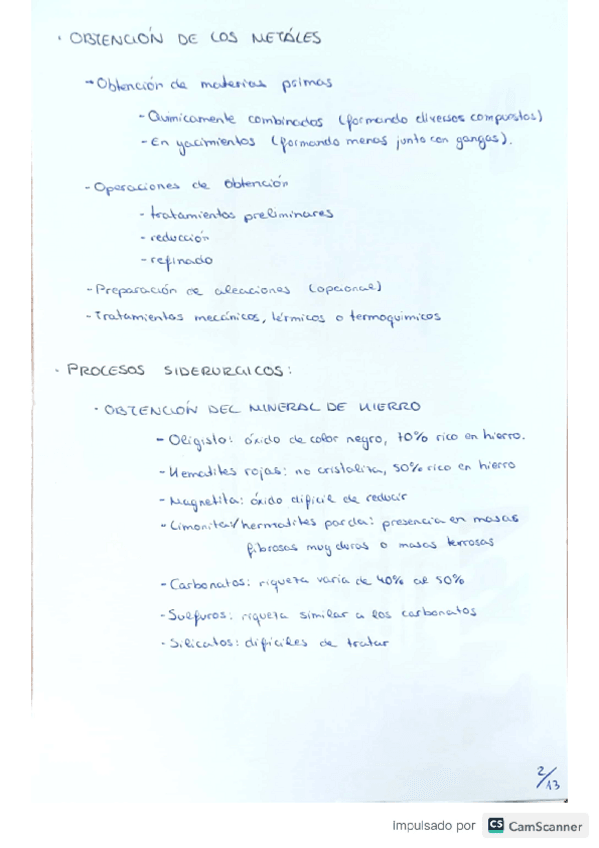 · OBTENCIÓN DE LOS METÁLES
- Obtención de materias primas
- Químicamente combinados (formando diversos compuestos)
- En yacimientos (formando menas junto con gangas).
- Operaciones de obtención
- tratamientos preliminares
- reducción
- refinado
- Preparación de aleaciones (opcional)
- Tratamientos mecánicos, térmicos o termoquimicos
· PROCESOS SIDERURGICOS:
· OBTENCIÓN DEL MINERAL DE HIERRO
- Oligisto: óxido de color negro, 70% rico en hierro.
- Hematites rojas: no cristaliza, 50% rico en hierro
- Magnetita: óxido dificil de reducir
- Limonita/hermatites parda: presencia en masas
fibrosas muy duras o masas terrosas
- Carbonatos: riqueza varia de 40% al 50%
- Sulfuros: riqueza similar a los carbonatos
- Silicatos: difíciles de tratar
2/13
Impulsado por CS CamScanner